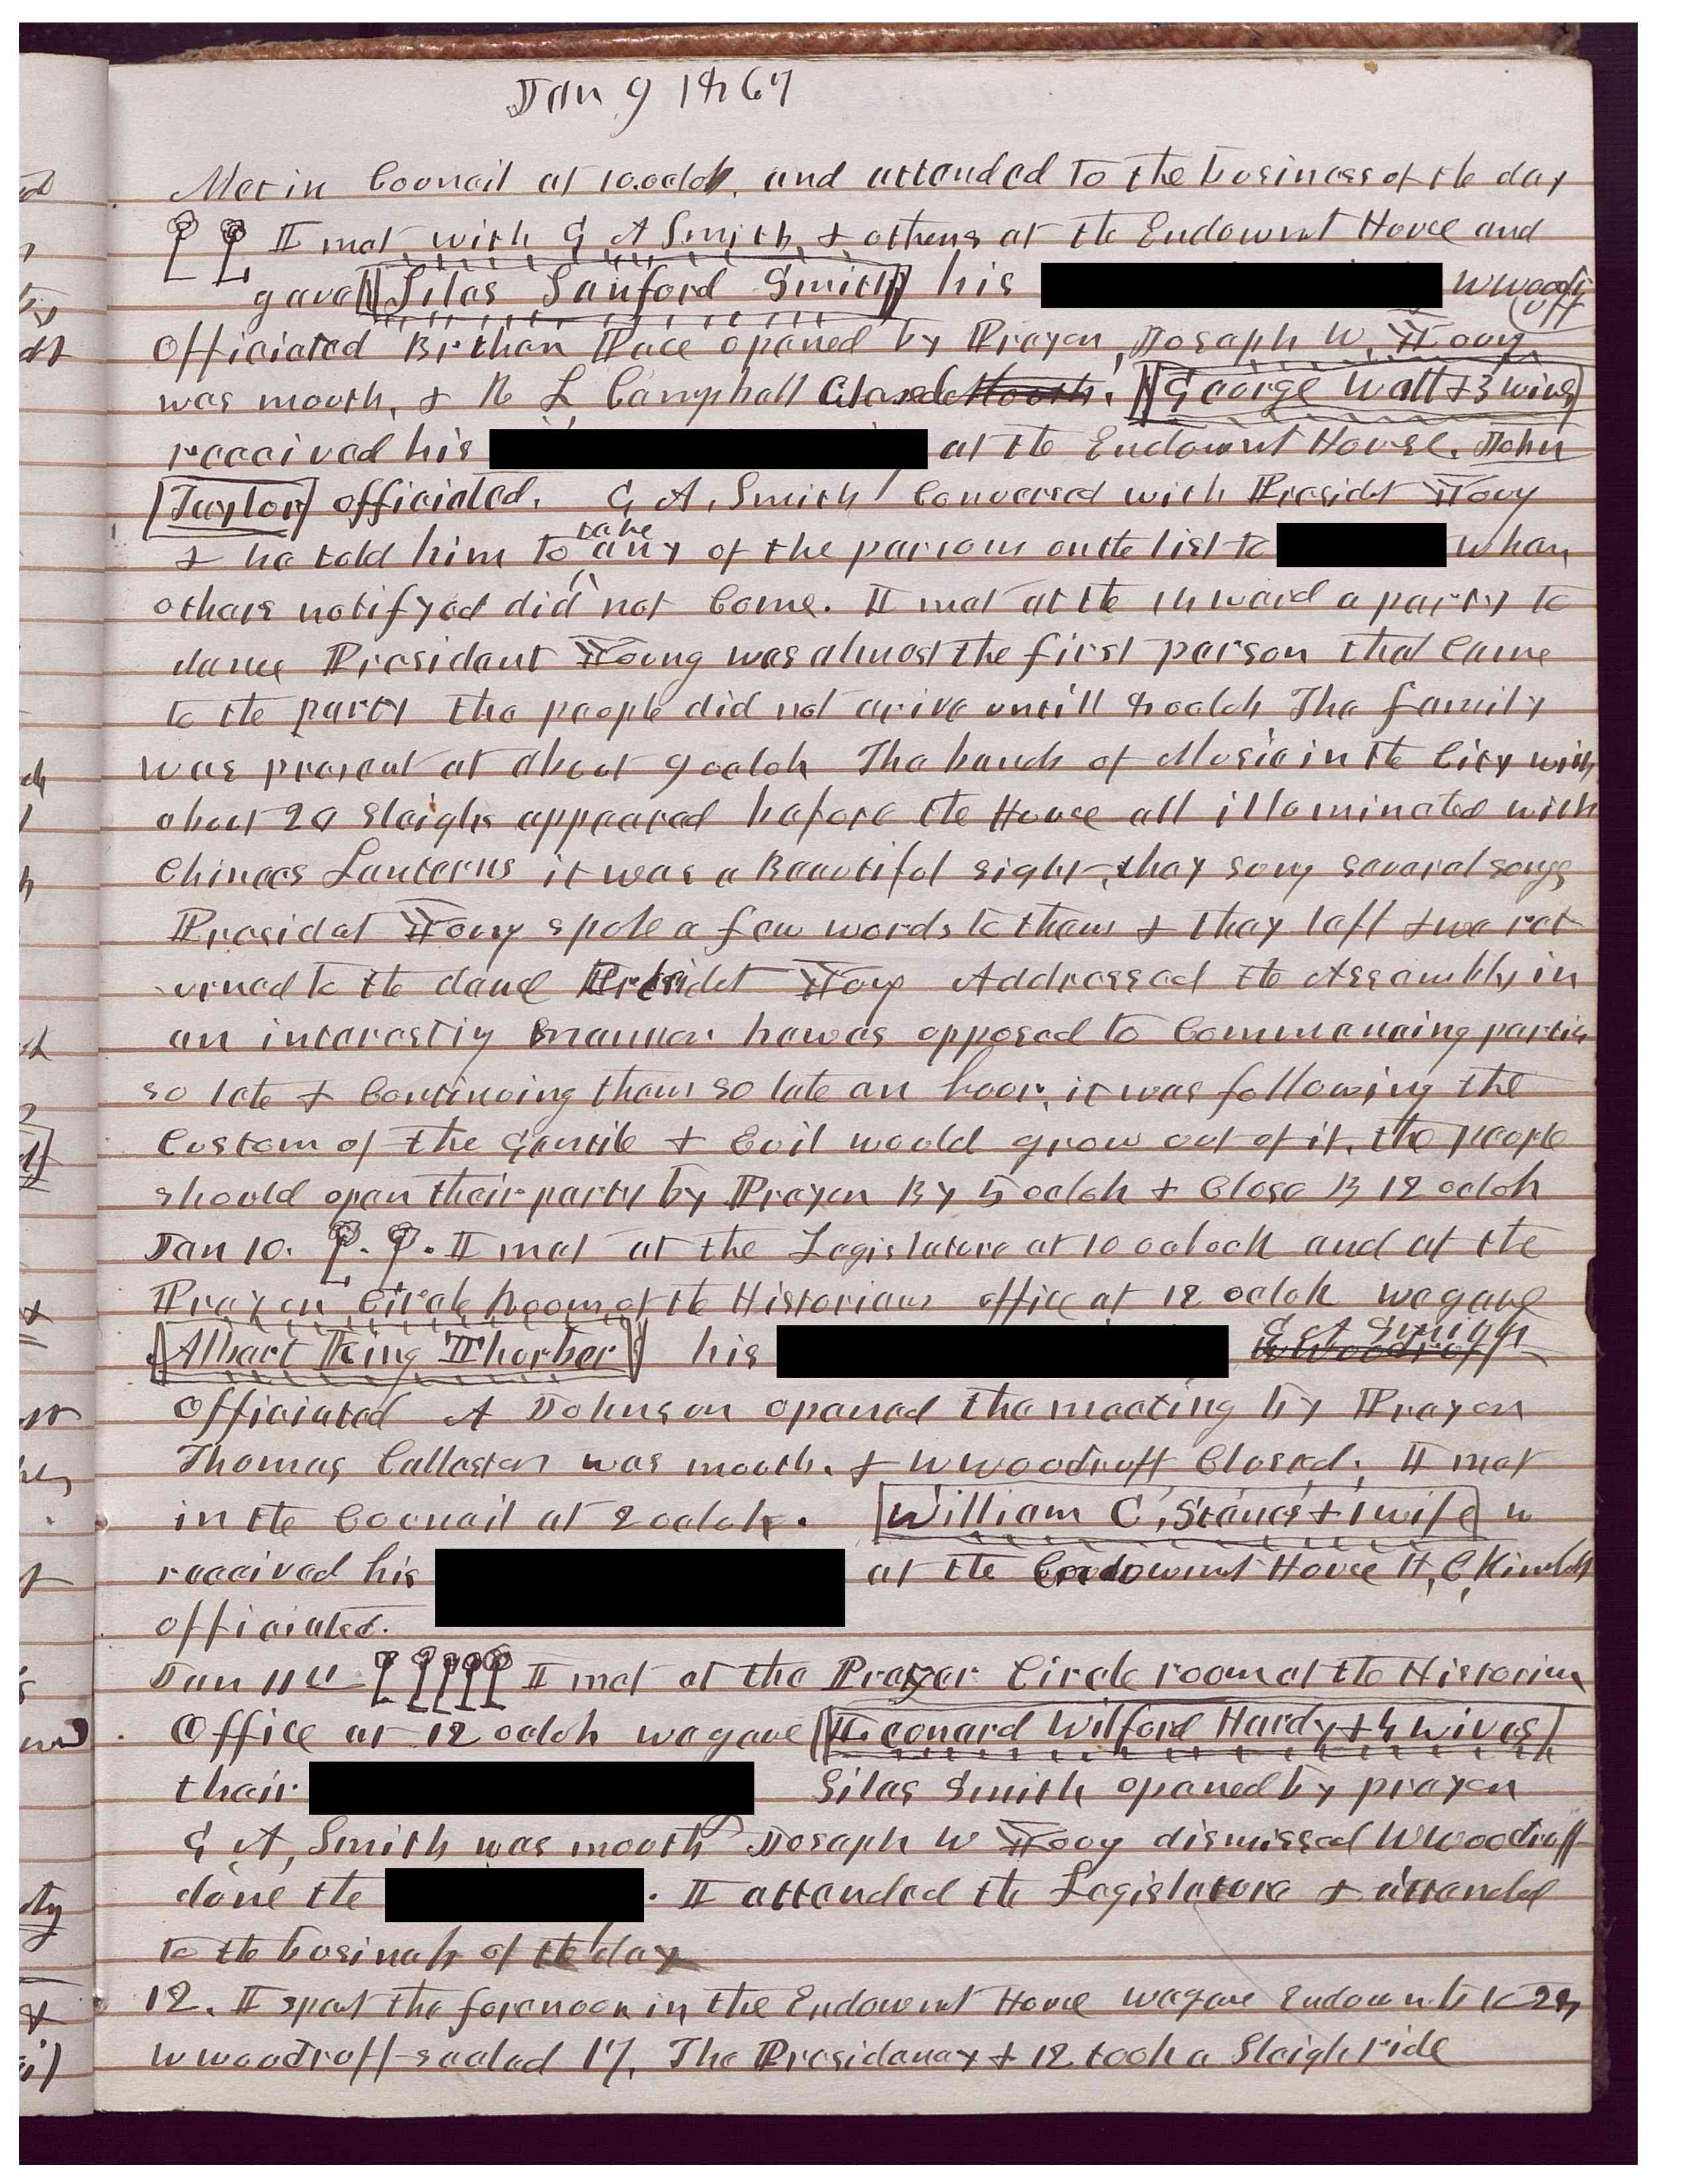 Jan 9 1867
Met in Council at 10 oclok, and attended to the business of the day
I met with G A Smith & others at the Endowmt House and
gave Silas Sanford Smith his W Woodruff
Officiated Brthan Pace opened by Prayer, Joseph W. Young
was mouth, & R L Campbell Closed Mouth. George Watt & 3 wives
received his at the Endowmt House. John
Taylor officiated. G A. Smith Conversed with Presidet Young
& he told him to take any of the persons on the list to when
others notifyed did not Come. II met at the 14 ward a party to
dance President Young was almost the first person that came
to the party the people did not arive untill 8 oclok The family
was present at about 9 oclok The bands of Music in the City with
about 20 Sleighs appeared before the House all illuminated with
Chinees Lanterns it was a Beautiful sight, they sung several songs
Presidet Young spoke a few words to them & they left & we ret
urned to the dance Presidet Young Addressed the Assembly in
an interestig manner he was opposed to Commencing parties
so late & Continuing them so late an hour, it was following the
Custom of the Gentile & Evil would grow out of it, the people
should open their party by Prayer By 5 oclok & Close B 12 oclok
Jan 10. I met at the Legislature at 10 oclock and at the
Prayer Circle Room of the Historians office at 12 oclok we gave
Albert King Thurber his G A Smith W Woodruff
Officiated A Johnson opened the meeting by Prayer
Thomas Callester was mouth. & W Woodruff Closed. I met
in the Council at 2 oclok. William C, Staines & 1 wife w
received his at the Endowmt House H, C Kimball
officiated.
Jan 11th I met at the Prayer Circle room at the Historian
Office at 12 oclok we gave Leonard Wilford Hardy & 4 wives
their Silas Smith opened by prayer
G A, Smith was mouth Joseph W Young dismissed W Woodruff
done the . I attended the Legislature & attended
to the business of the day
12. I spent the forenoon in the Endowmt House we gave Endowmts to
W Woodruff sealed 17, The Presidency & 12 took a Sleigh ride